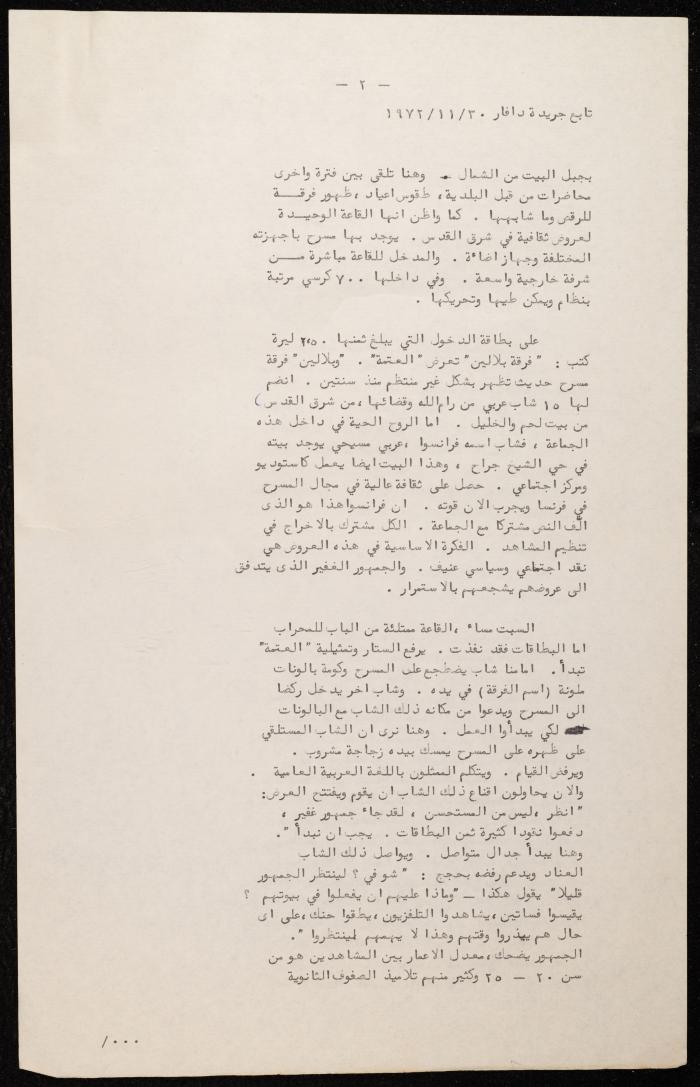 — ٢ —
تابع جريدة دافار ٣٠/١١/١٩٧٢
بجبل البيت من الشمال . وهنا تلقى بين فترة واخرى
محاضرات من قبل البلدية ، طقوس اعياد ، ظهور فرقـــة
للرقص وما شابهها . كما واظن انها القاعة الوحيـدة
لعروض ثقافية في شرق القدس . يوجد بها مسرح باجهزته
المختلفة وجهاز اضاءة . والمدخل للقاعة مباشرة مـــن
شرفة خارجية واسعة . وفي داخلها ٧٠٠ كرسي مرتبة
بنظام ويمكن طيها وتحريكها .
على بطاقة الدخول التي يبلغ ثمنها ٢،٥٠ ليرة
كتب : " فرقة بلالين" تعرض " العتمة" . "وبلالين" فرقة
مسرح حديث تظهر بشكل غير منتظم منذ سنتين . انضم
لها ١٥ شاب عربي من رام الله وقضائها ، من شرق القدس )
من بيت لحم والخليل . اما الروح الحية في داخل هذه
الجماعة ، فشاب اسمه فرانسوا ، عربي مسيحي يوجد بيته
في حي الشيخ جراح ، وهذا البيت ايضا يعمل كاستوديو
ومركز اجتماعي . حصل على ثقافة عالية في مجال المسرح
في فرنسا ويجرب الان قوته . ان فرانسوا هذا هو الذى
الّف النص مشتركا مع الجماعة . الكل مشترك بالاخراج في
تنظيم المشاهد . الفكرة الاساسية في هذه العروض هي
نقد اجتماعي وسياسي عنيف . والجمهور الغفير الذى يتدفق
الى عروضهم يشجعهم بالاستمرار .
السبت مساء ، القاعة ممتلئة من الباب للمحراب
اما البطاقات فقد نفذت . يرفع الستار وتمثيلية " العتمة"
تبدأ . امامنا شاب يضطجع على المسرح وكومة بالونات
ملونة ( اسم الفرقة ) في يده . وشاب اخر يدخل ركضا
الى المسرح ويدعوا من مكانه ذلك الشاب مع البالونات
لكي يبدأوا العمل . وهنا نرى ان الشاب المستلقي
على ظهره على المسرح يمسك بيده زجاجة مشروب .
ويرفض القيام . ويتكلم الممثلون باللغة العربية العامية .
والان يحاولون اقناع ذلك الشاب ان يقوم ويفتتح العرض:
" انظر ، ليس من المستحسن ، لقد جاء جمهور غفير ،
دفعوا نقودا كثيرة ثمن البطاقات . يجب ان نبدأ ".
وهنا يبدأ جدال متواصل . ويواصل ذلك الشاب
العناد ويدعم رفضه بحجج : " شو في ؟ لينتظر الجمهور
قليلا" يقول هكذا — "وماذا عليهم ان يفعلوا في بيوتهم ؟
يقيسوا فساتين ، يشاهدوا التلفزيون ، يطقوا حنك ، على اى
حال هم يهذروا وقتهم وهذا لا يهمهم لمينتظروا ".
الجمهور يضحك ، معدل الاعمار بين المشاهدين هو من
سن ٢٠ — ٢٥ وكثير منهم تلاميذ الصفوف الثانوية
/ ٠٠٠